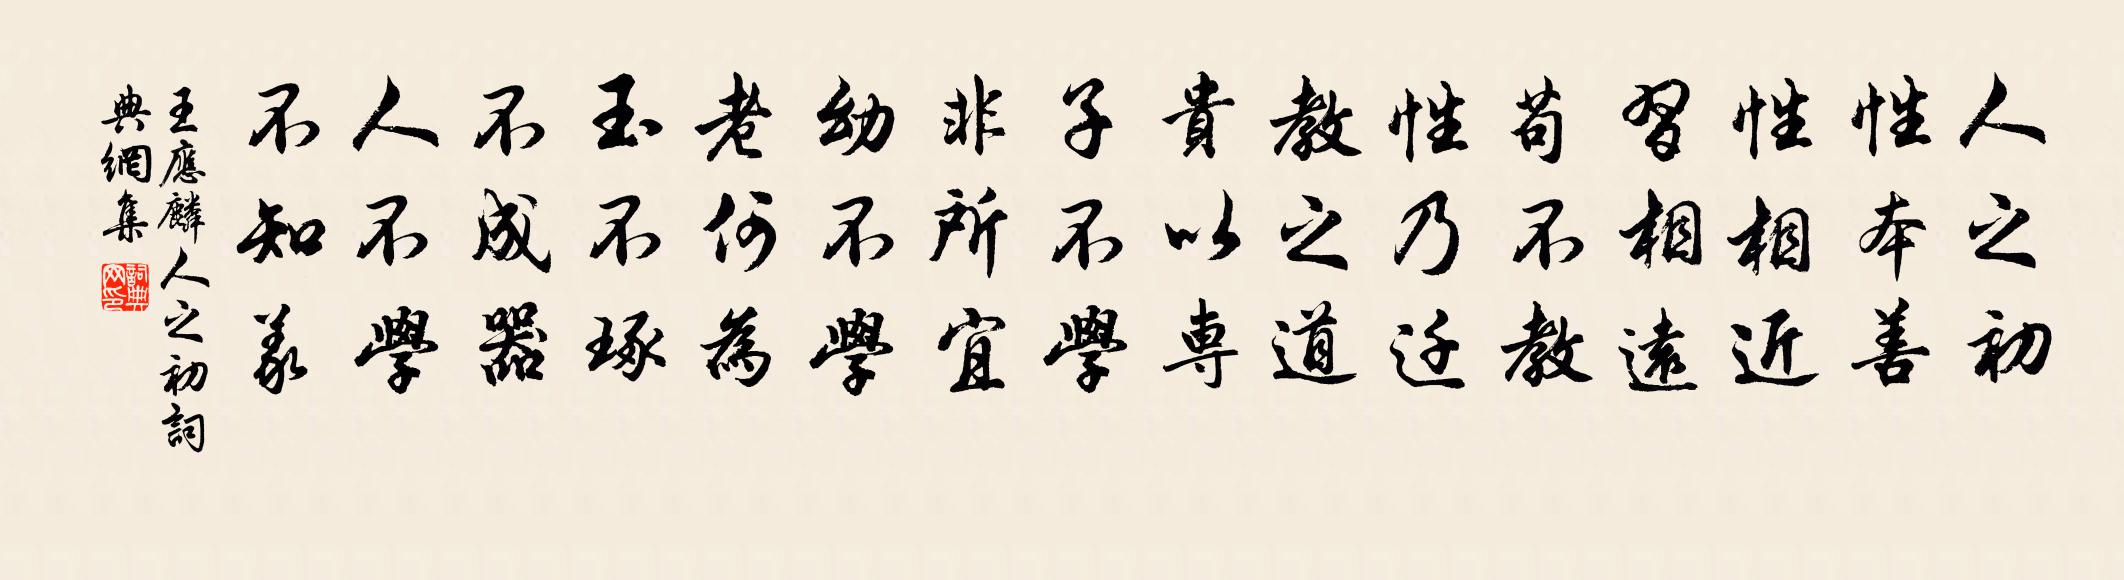 人之初
性本善
性相近
習相遠
苟不教
性乃迁
教之道
貴以専
子不學
非所宜
幼不學
老何為
玉不琢
不成器
人不學
不知義
王應麟人之初詞
典網集
詞典
网印